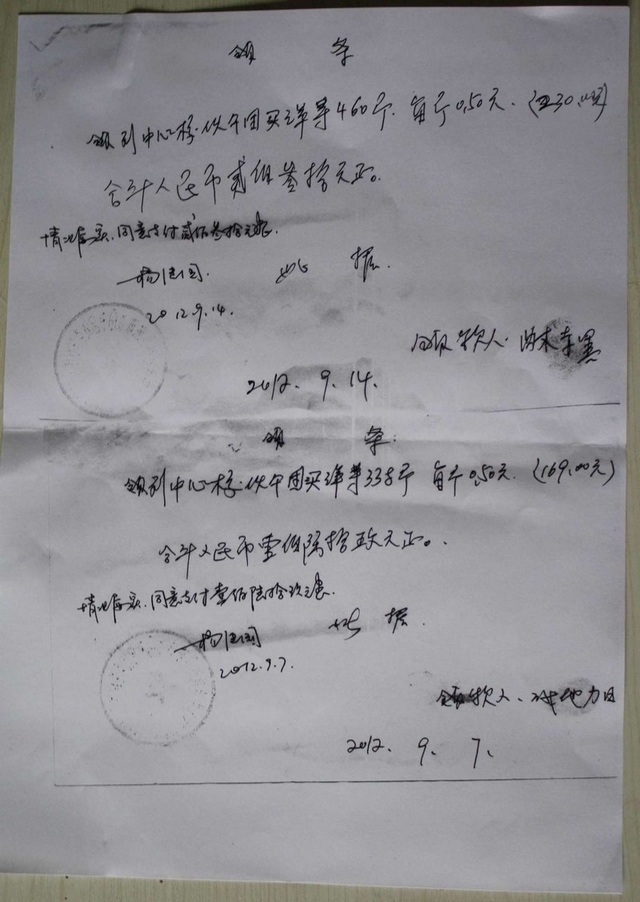 领 条
领到中心校伙午团买洋芋460斤. 每斤0.50元. (230.00元)
合计人民币贰佰叁拾元正。
情况属实.同意支付贰佰叁拾元整.
杨
2012.9.14.
此 据.
领款人:
2012. 9. 14.
领 条:
领到中心校伙午团买洋芋338斤 每斤0.50元. (169.00元)
合计人民币壹佰陆拾玖元正。
情况属实.同意支付壹佰陆拾玖元整.
杨
2012.9.7.
此 据.
领款人、 力日
2012. 9. 7.